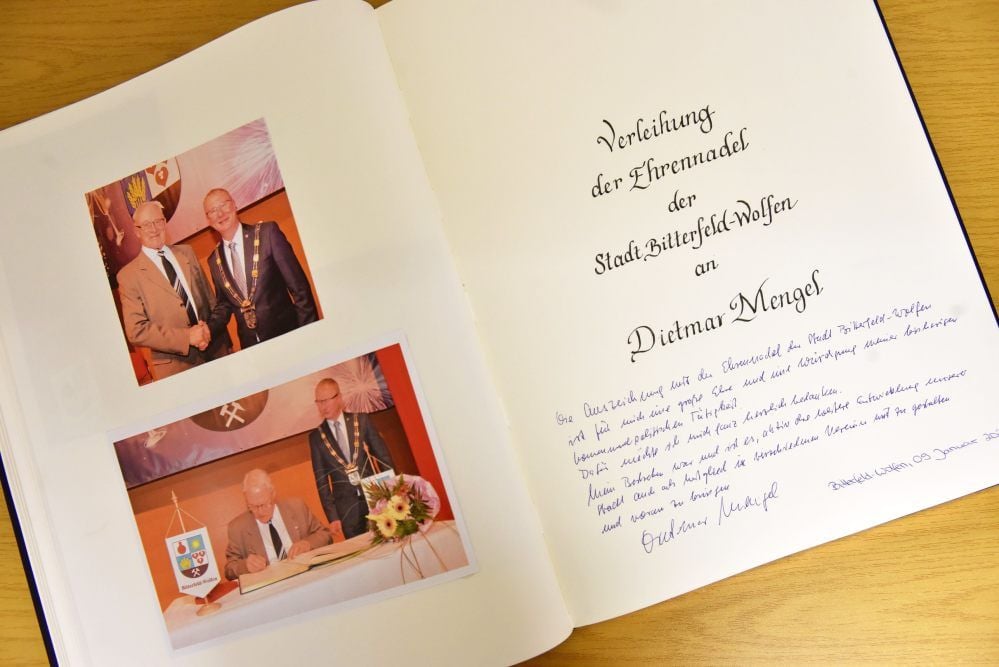 Bitterfeld-Wolfen
Verleihung
der Ehrennadel
der
Stadt Bitterfeld-Wolfen
an
Dietmar Mengel
Die Auszeichnung mit der Ehrennadel der Stadt Bitterfeld-Wolfen
ist für mich eine große Ehre und eine Würdigung meiner bisherigen
kommunalpolitischen Tätigkeit.
Dafür möchte ich mich ganz herzlich bedanken.
Mein Bestreben war und ist es, aktiv die weitere Entwicklung unserer
Stadt auch als Mitglied in verschiedenen Vereinen mit zu gestalten
und voran zu bringen
Dietmar Mengel
Bitterfeld-Wolfen, 09. Januar